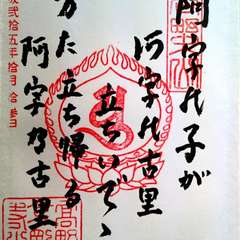 阿字の子が
阿字の古里
立ちいでゝ
また立ち帰る
阿字乃古里
弐拾五年拾月
高野